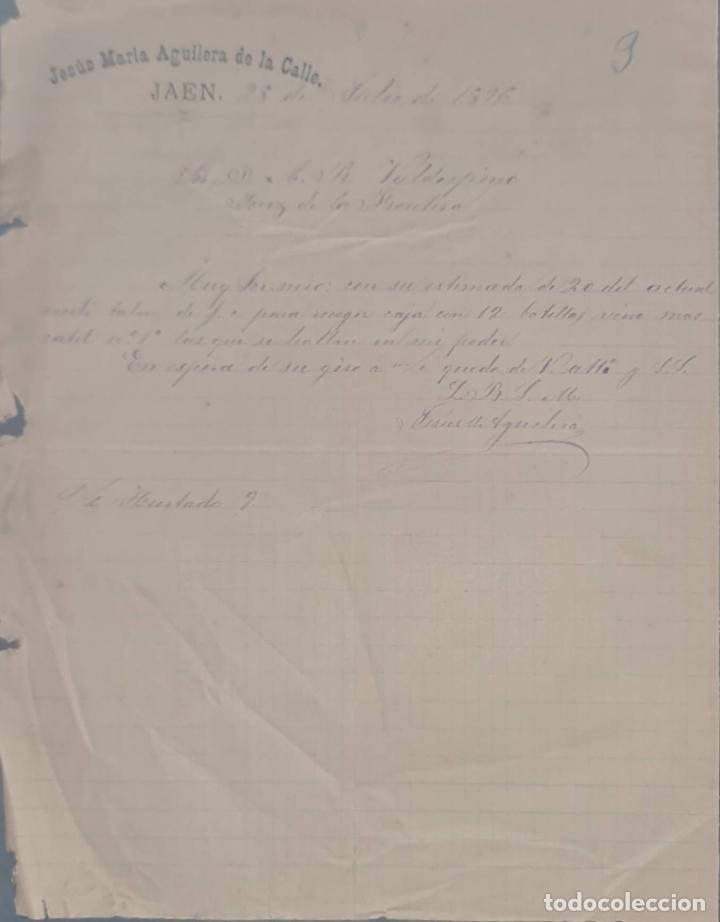 Jesús Maria Aguilera de la Calle.
JAEN. 28 de Julio de 1896
9
Sr. D. A. R. Valdespino
Jerez de la Frontera
Muy Sr. mio: con su estimada de 20 del actual
recibi talon de f. c. para recoger caja con 12 botellas vino mos
catel nº 1º las que se hallan en mi poder
En espera de su giro á queda de V. atto y S.S.
Q. B. S. M.
Jesus M. Aguilera
Hurtado 9
todocoleccion